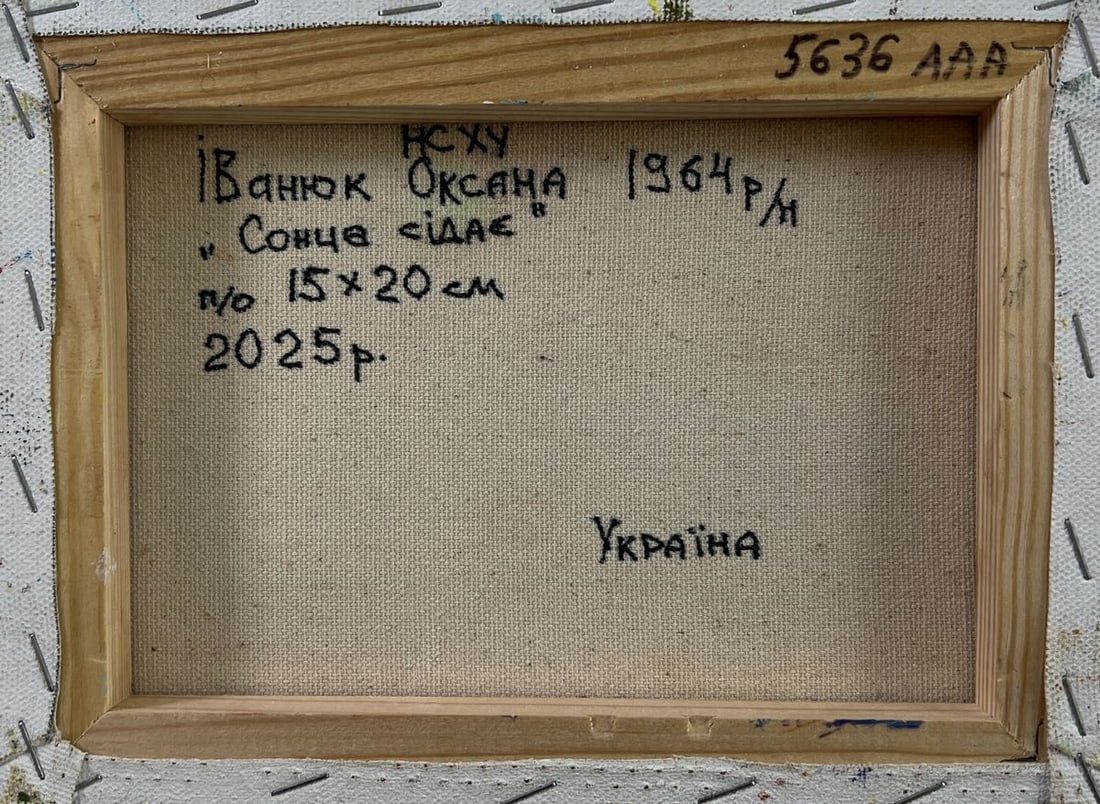 5636 ААА
НСХУ
Іванюк Оксана 1964 р/н
„Сонце сідає"
п/о 15×20 см
2025 р.
Україна